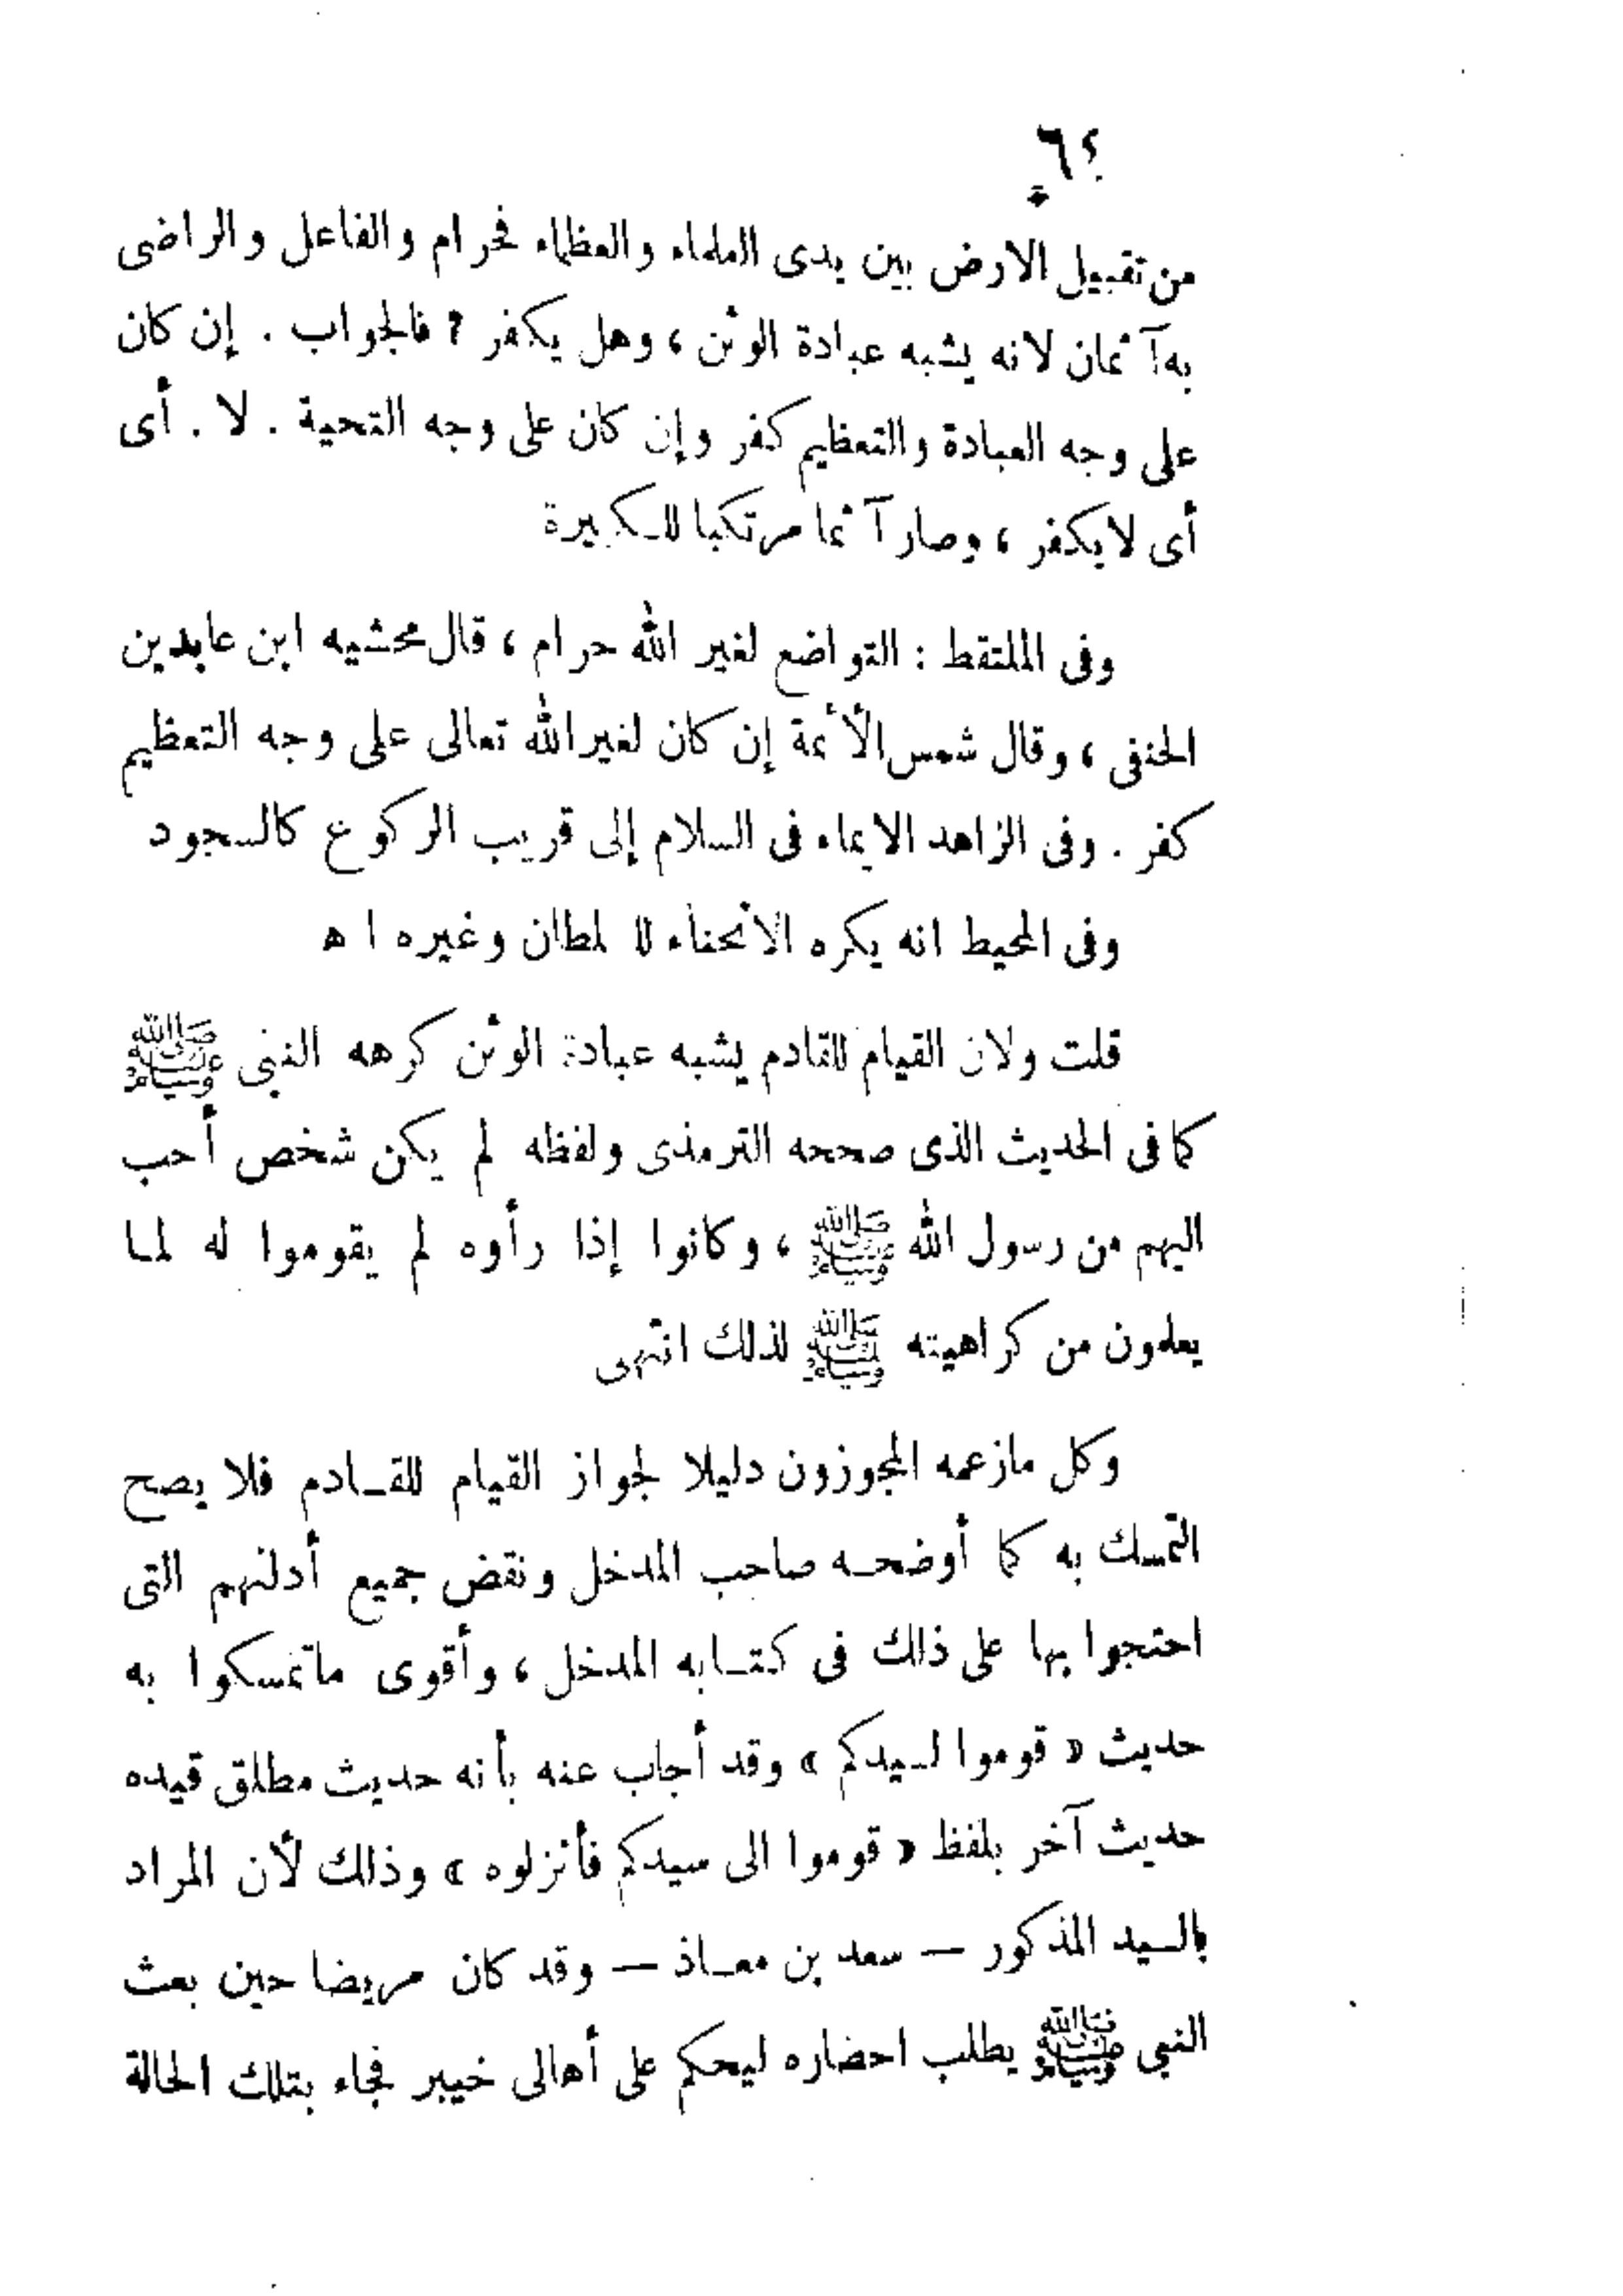 ٦٢
من تقبيل الارض بين يدى العلماء والعظماء فحرام والفاعل والراضى
به آثمان لانه يشبه عبادة الوثن ، وهل يكفر ؟ فالجواب . إن كان
على وجه العبادة والتعظيم كفر وإن كان على وجه التحية . لا . أى
أى لايكفر ، وصار آثما مرتكبا للكبيرة
وفى الملتقط : التواضع لغير الله حرام ، قال محشيه ابن عابدين
الحنفى ، وقال شمس الأئمة إن كان لغير الله تعالى على وجه التعظيم
كفر . وفى الزاهد الايماء فى السلام إلى قريب الركوع كالسجود
وفى المحيط انه يكره الانحناء للسلطان وغيره ا ه
قلت ولان القيام للقادم يشبه عبادة الوثن كرهه النبى ﷺ
كما فى الحديث الذى صححه الترمذى ولفظه لم يكن شخص أحب
اليهم من رسول الله ﷺ ، وكانوا إذا رأوه لم يقوموا له لما
يعلمون من كراهيته ﷺ لذلك انتهى
وكل مازعمه المجوزون دليلا لجواز القيام للقادم فلا يصح
التمسك به كما أوضحه صاحب المدخل ونقض جميع أدلتهم التى
احتجوا بها على ذلك فى كتابه المدخل ، وأقوى ماتمسكوا به
حديث « قوموا لسيدكم » وقد أجاب عنه بأنه حديث مطلق قيده
حديث آخر بلفظ « قوموا الى سيدكم فأنزلوه » وذلك لأن المراد
بالسيد المذكور — سعد بن معاذ — وقد كان مريضا حين بعث
النبى ﷺ يطلب احضاره ليحكم على أهالى خيبر فجاء بتلك الحالة